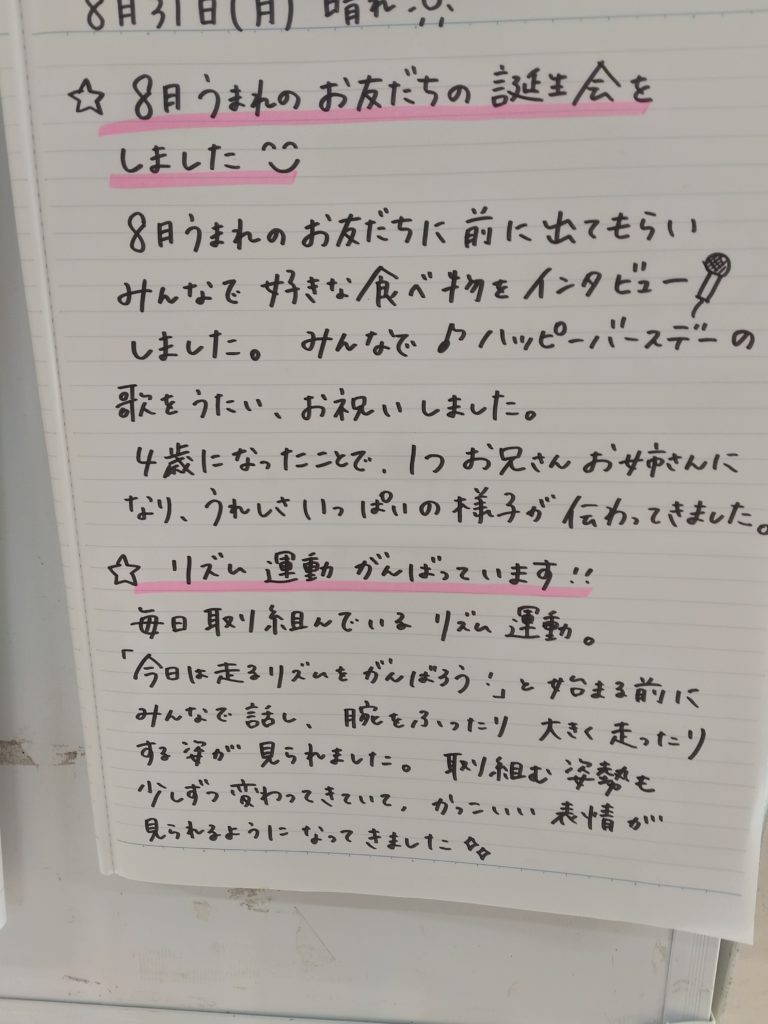 8月31日(月) 晴れ
☆ 8月うまれの お友だちの 誕生会を
しました
8月うまれの お友だちに 前に 出てもらい
みんなで 好きな 食べ物を インタビュー
しました。 みんなで ♪ ハッピーバースデーの
歌を うたい、お祝い しました。
4歳に なったことで、1つ お兄さん お姉さんに
なり、うれしさ いっぱいの 様子が 伝わってきました。
☆ リズム 運動 がんばっています!!
毎日 取り組んでいる リズム 運動。
「今日は 走る リズムを がんばろう!」と 始まる前に
みんなで 話し、 腕を ふったり 大きく 走ったり
する 姿が 見られました。 取り組む 姿勢も
少しずつ 変わってきていて、かっこいい 表情が
見られるように なって きました